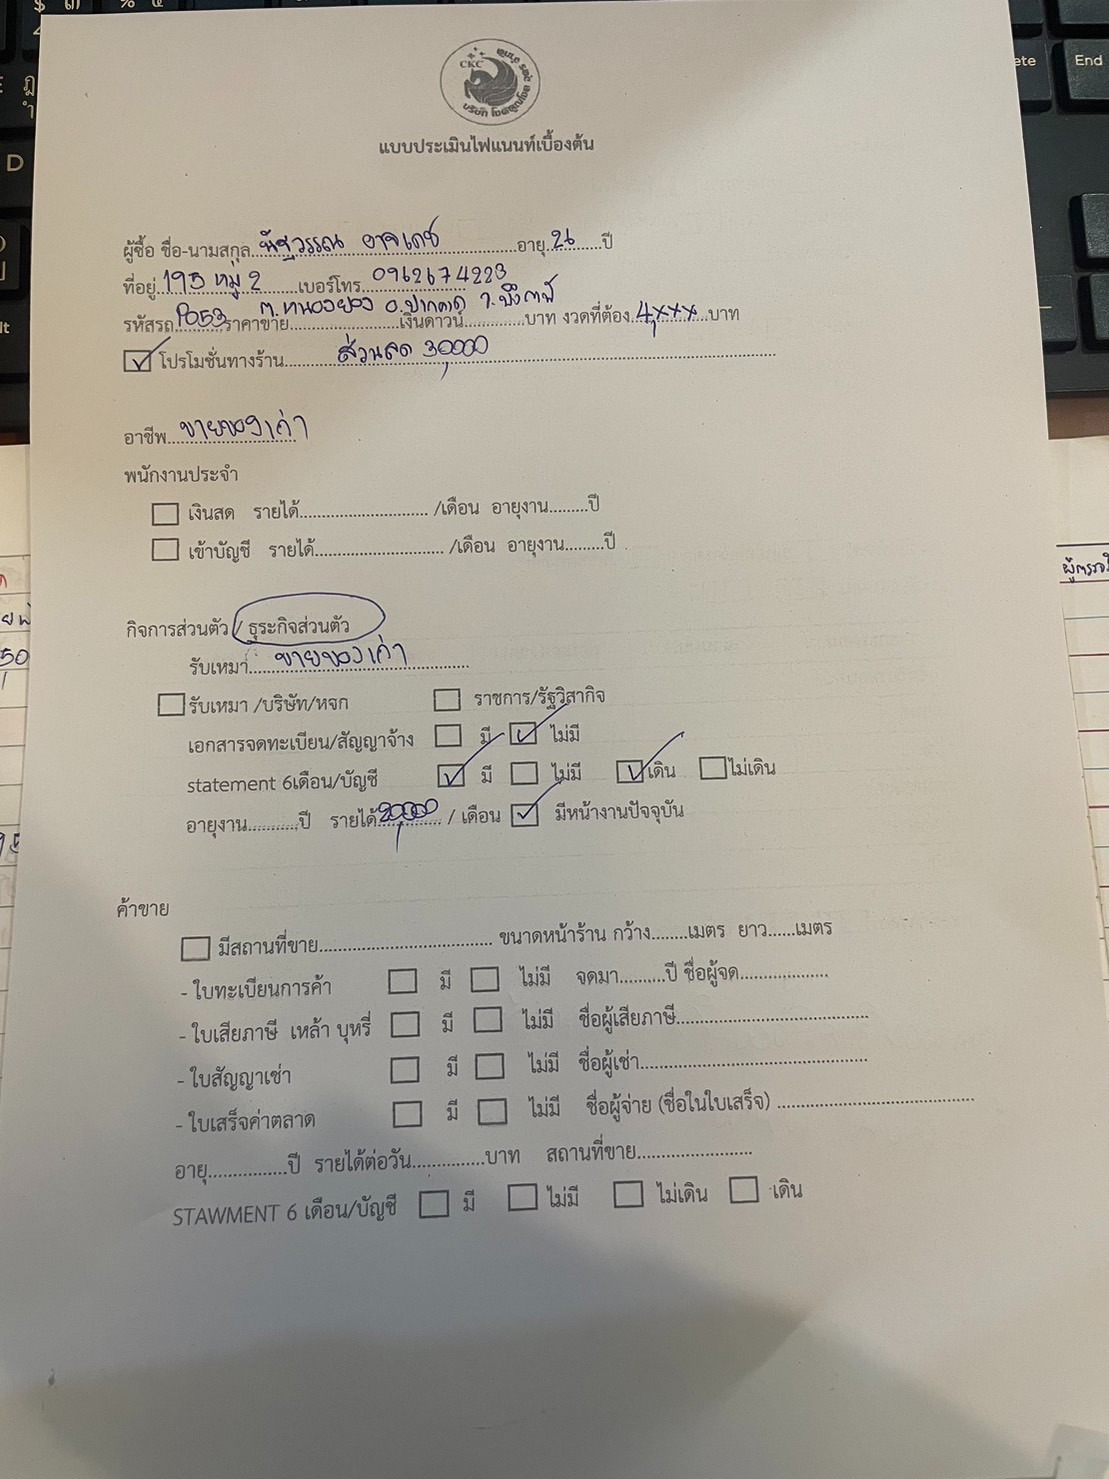 CKC
แบบประเมินไฟแนนท์เบื้องต้น
ผู้ซื้อ ชื่อ-นามสกุล ณัฐวรรณ อาจเดช อายุ 26 ปี
ที่อยู่ 195 หมู่ 2 เบอร์โทร 0962674223
ต.หนองยอง อ.ปากคาด จ.บึงกาฬ
รหัสรถ P053 ราคาขาย เงินดาวน์ บาท งวดที่ต้อง 4,xxx บาท
โปรโมชั่นทางร้าน ส่วนลด 30,000
อาชีพ ขายของเก่า
พนักงานประจำ
เงินสด รายได้ /เดือน อายุงาน ปี
เข้าบัญชี รายได้ /เดือน อายุงาน ปี
กิจการส่วนตัว / ธุระกิจส่วนตัว
รับเหมา ขายของเก่า
รับเหมา /บริษัท/หจก ราชการ/รัฐวิสากิจ
เอกสารจดทะเบียน/สัญญาจ้าง มี ไม่มี
statement 6เดือน/บัญชี มี ไม่มี เดิน ไม่เดิน
อายุงาน ปี รายได้ 20,000 / เดือน มีหน้างานปัจจุบัน
ค้าขาย
มีสถานที่ขาย ขนาดหน้าร้าน กว้าง เมตร ยาว เมตร
- ใบทะเบียนการค้า มี ไม่มี จดมา ปี ชื่อผู้จด
- ใบเสียภาษี เหล้า บุหรี่ มี ไม่มี ชื่อผู้เสียภาษี
- ใบสัญญาเช่า มี ไม่มี ชื่อผู้เช่า
- ใบเสร็จค่าตลาด มี ไม่มี ชื่อผู้จ่าย (ชื่อในใบเสร็จ)
อายุ ปี รายได้ต่อวัน บาท สถานที่ขาย
STAWMENT 6 เดือน/บัญชี มี ไม่มี ไม่เดิน เดิน
End
D